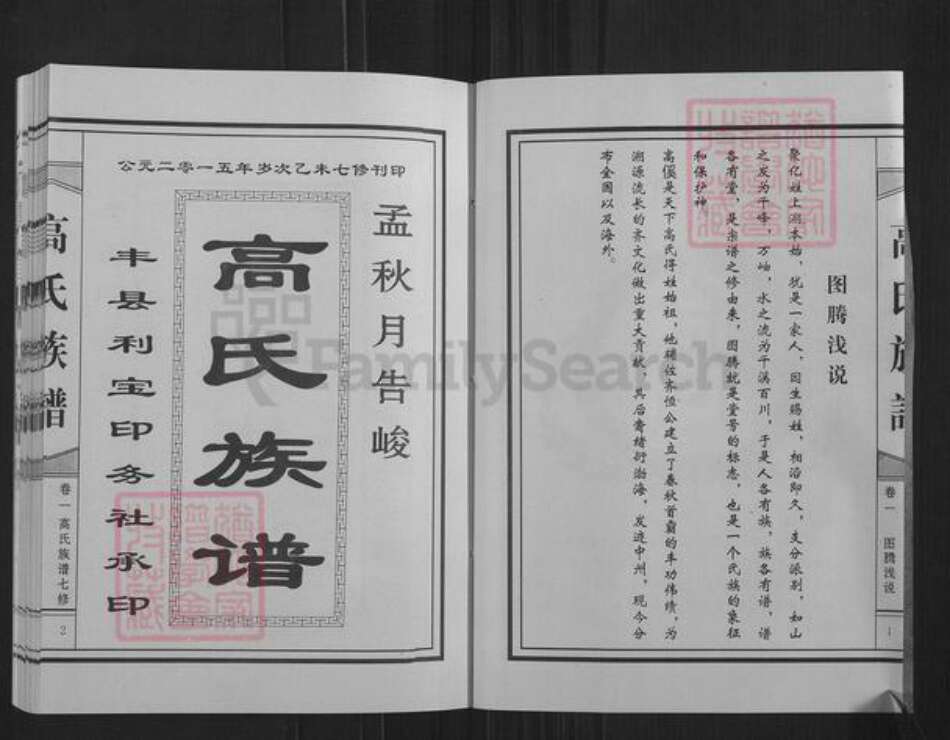 高氏族谱
卷一
图腾浅说
1
图腾浅说
聚亿姓上溯本始，犹是一家人，因生赐姓，相沿即久，支分派别，如山
之发为千峰，万岫，水之流为千溪百川，于是人各有族，族各有谱，谱
各有堂，是宗谱之修由来，图腾就是堂号的标志，也是一个氏族的象征
和保护神。
高傒是天下高氏得姓始祖，他辅佐齐恒公建立了春秋首霸的丰功伟绩，为
溯源流长的齐文化做出重大贡献，其后裔绪衍渤海，发迹中州，现今分
布全国以及海外。
公元二零一五年岁次乙未七修刊印
孟秋月告峻
高氏族谱
丰县利宝印务社承印
高氏族谱
卷一高氏族谱七修
2
FamilySearch